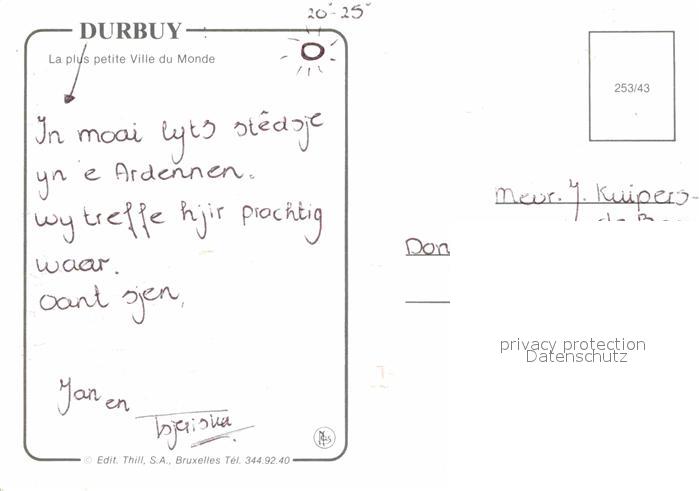 20° - 25°
DURBUY
La plus petite Ville du Monde
In moai lyts stêdsje
yn 'e Ardennen.
wy treffe hjir prachtig
waar.
Oant sjen,
Jan en
Tsjeriska
© Edit. Thill, S.A., Bruxelles Tél. 344.92.40
253/43
Mevr. J. Kuipers-
Don
privacy protection
Datenschutz